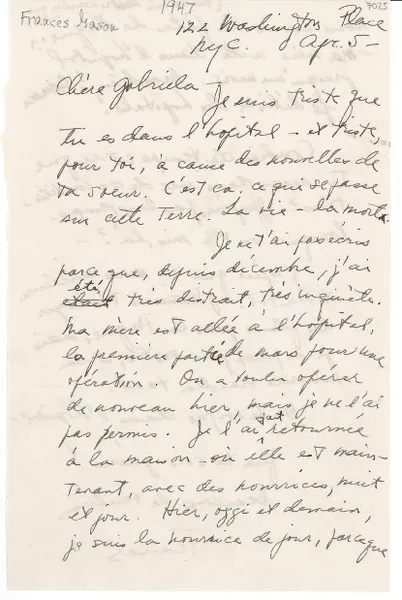 1947
7025
Frances Mason
122 Washington Place
NyC. Apr. 5-
Chère Gabriela Je suis triste que
tu es dans l'hôpital - et triste,
pour toi, à cause des nouvelles de
ta soeur. C'est ça, ce qui se passe
sur cette Terre. La vie - la morte.
Je ne t'ai pas écris
parce que, depuis décembre, j'ai
été
était très distrait, très inquiète.
Ma mère est allée à l'hôpital,
la première partie de mars pour une
opération. On a voulu opérer
de nouveau hier, mais je ne l'ai
pas permis. Je l'ai retournée
à la maison - où elle est main-
tenant, avec des nourrices, nuit
et jour. Hier, oggi et demain,
je suis la nourrice de jour, parceque